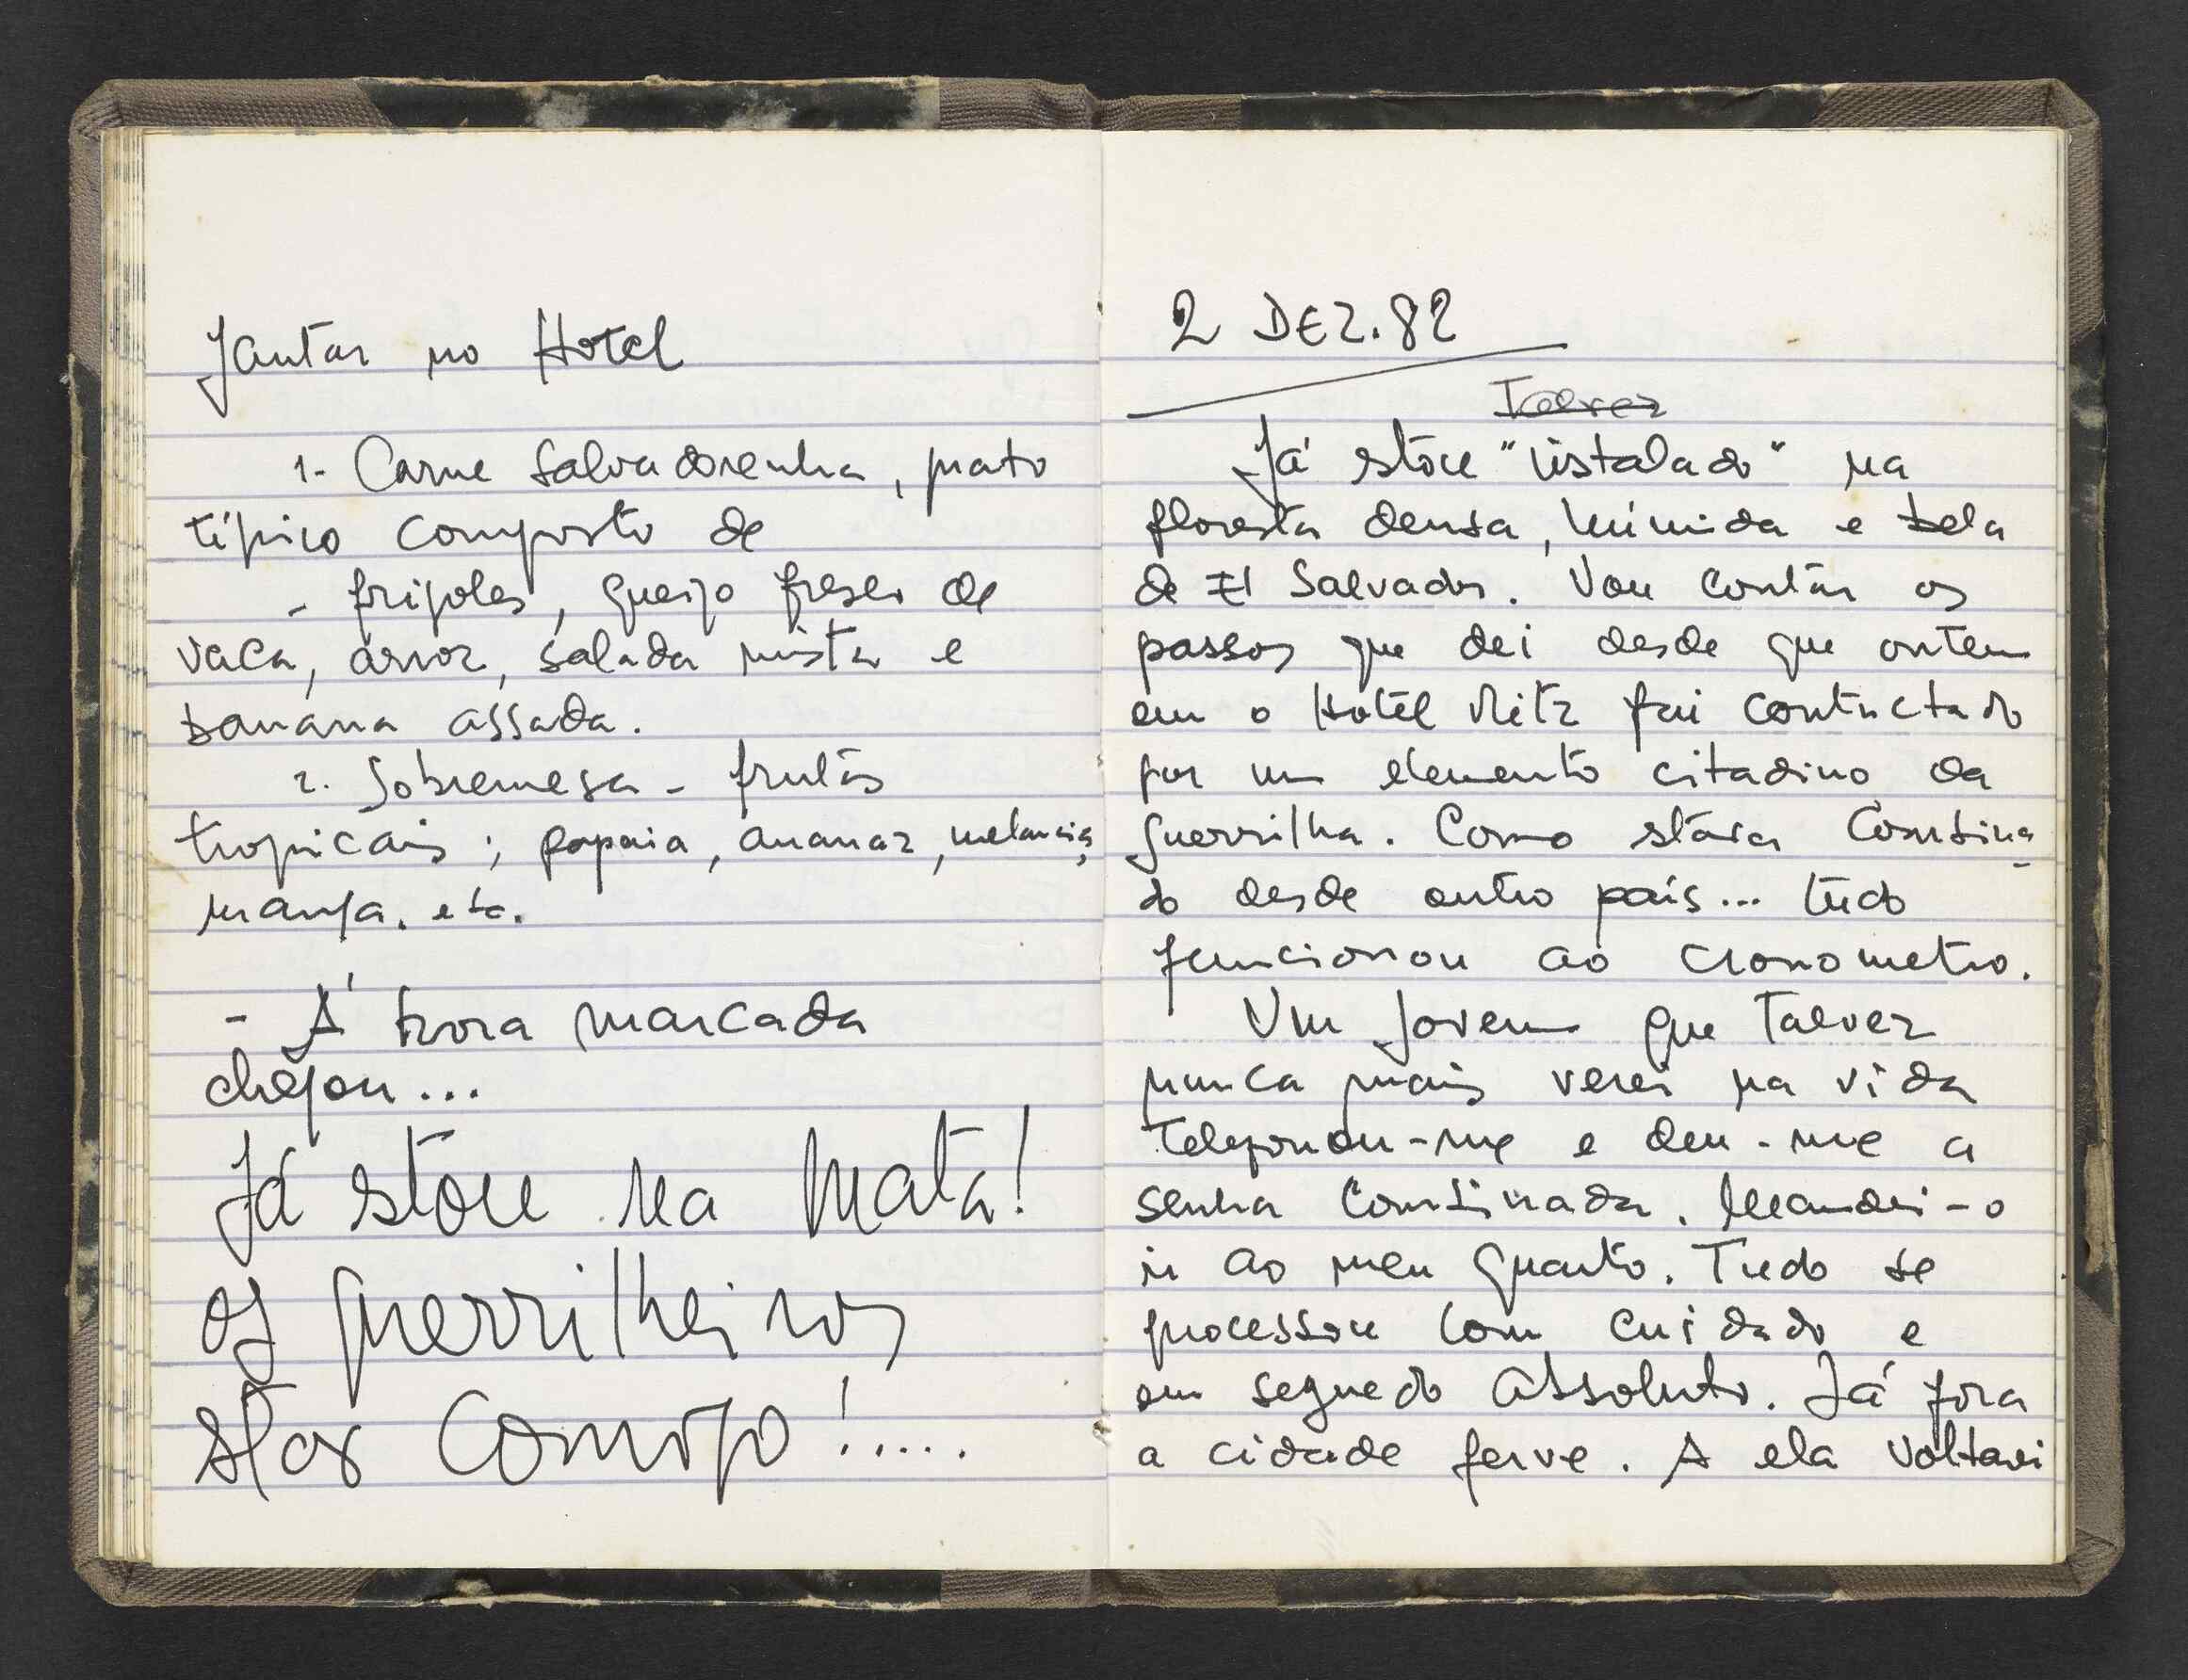 Jantar no Hotel
1- Carne Salvadorenha, prato
típico composto de
- frijoles, queijo fresco de
vaca, arroz, salada mista e
banana assada.
2. Sobremesa - frutas
tropicais; papaia, ananaz, melancia,
manga. etc.
- Á hora marcada
chegou...
Já stou na mata!
os guerrilheiros
stão comigo!.....
2 DEZ.82
Talvez
Já stou "instalado" na
floresta densa, húmida e bela
de El Salvador. Vou contar os
passos que dei desde que ontem
em o Hotel Ritz fui contactado
por um elemento citadino da
guerrilha. Como stava combina-
do desde outro país... tudo
funcionou ao cronometro.
Um jovem que talvez
nunca mais verei na vida
telefonou-me e deu-me a
senha combinada. Mandei-o
ir ao meu quarto. Tudo se
processou com cuidado e
em segredo absoluto. Lá fora
a cidade ferve. A ela voltarei